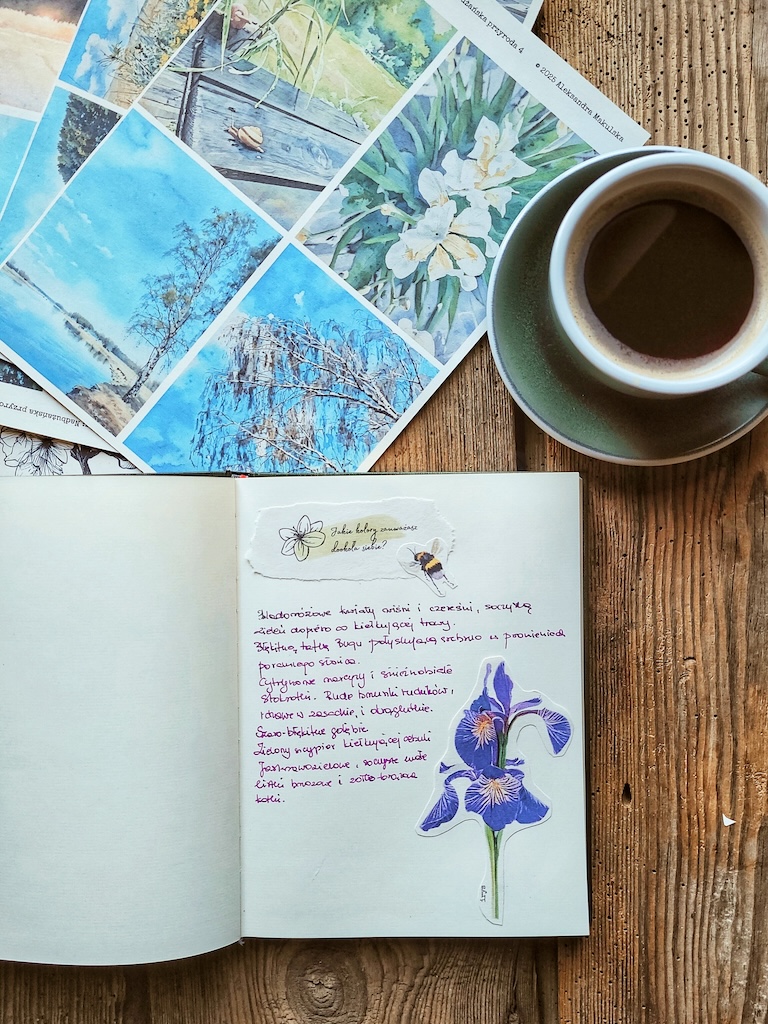 żańska przyroda 4
© 2025 Aleksandra Makulska
Nadbużańska przyro
Jakie kolory zauważasz
dookoła siebie?
Bladoróżowe kwiaty wiśni i czereśni, soczystą
zieleń dopiero co kiełkującej trawy.
Błękitną taflę Bugu połyskującą srebrno w promieniach
porannego słońca.
Cytrynowe narcyzy i śnieżnobiałe
stokrotki. Rude brzuszki rudzików,
w zasadzie, i okrąglutkie.
Szaro-błękitne gołębie
Zielony szczypior kiełkującej cebuli
Jasnozielone, soczyste małe
listki brzozowe i żółto-brązowe
kotki.
irys